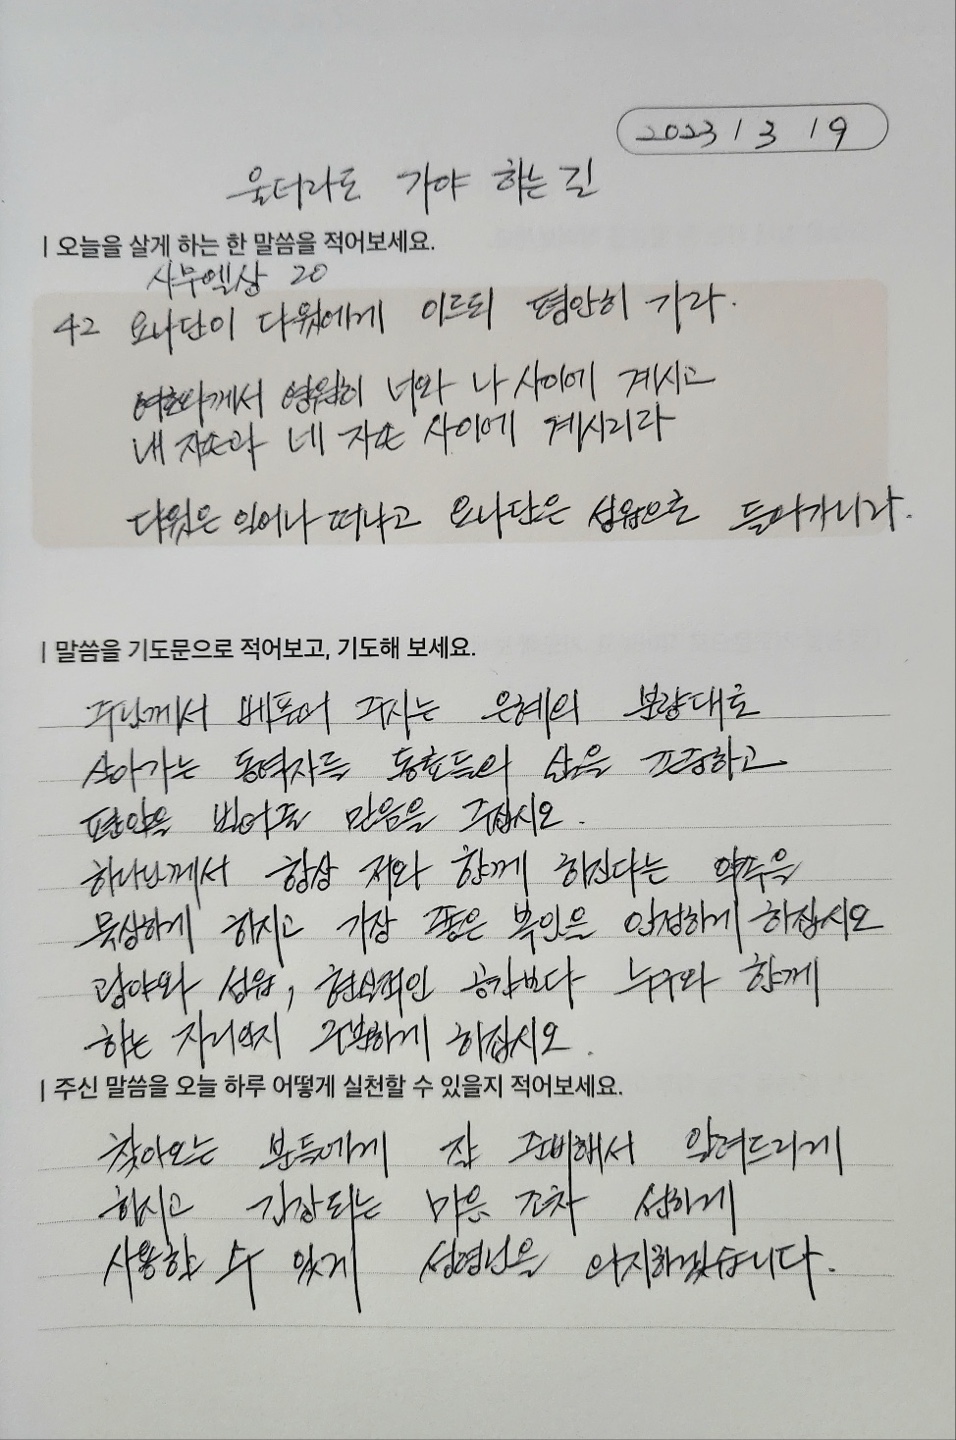 2023 / 3 / 9
울더라도 가야 하는 길
| 오늘을 살게 하는 한 말씀을 적어보세요.
사무엘상 20
42 요나단이 다윗에게 이르되 평안히 가라.
여호와께서 영원히 너와 나 사이에 계시고
내 자손과 네 자손 사이에 계시리라
다윗은 일어나 떠나고 요나단은 성읍으로 들어가니라.
| 말씀을 기도문으로 적어보고, 기도해 보세요.
주님께서 베풀어 주시는 은혜의 분량대로
살아가는 동역자들 동료들의 삶을 존중하고
평안을 빌어줄 믿음을 주십시오.
하나님께서 항상 저와 함께 하신다는 약속을
묵상하게 하시고 가장 좋은 복인을 인정하게 하십시오
광야와 성읍, 현실적인 공간보다 누구와 함께
하는 자리인지 구분하게 하십시오.
| 주신 말씀을 오늘 하루 어떻게 실천할 수 있을지 적어보세요.
찾아오는 분들에게 잘 준비해서 알려드리게
하시고 긴장되는 마음 조차 선하게
사용할 수 있게 성령님을 의지하겠습니다.